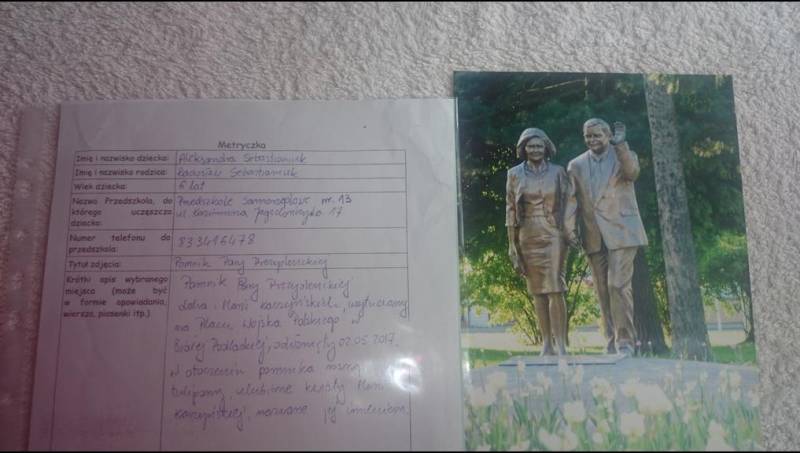 Metryczka
Imię i nazwisko dziecka: Aleksandra Sebastianiuk
Imię i nazwisko rodzica: Radosław Sebastianiuk
Wiek dziecka: 6 lat
Nazwa Przedszkola, do którego uczęszcza dziecko:
Przedszkole Samorządowe nr. 13
ul. Kazimierza Jagiellończyka 17
Numer telefonu do przedszkola: 833416478
Tytuł zdjęcia: Pomnik Pary Prezydenckiej
Krótki opis wybranego
miejsca (może być
w formie opowiadania,
wiersza, piosenki itp.)
Pomnik Pary Prezydenckiej
Lecha i Marii Kaczyńskich, usytuowany
na Placu Wojska Polskiego w
Białej Podlaskiej, odsłonięty 02.05.2017.
W otoczeniu pomnika rosną
tulipany, ulubione kwiaty Marii
Kaczyńskiej, nazwane jej imieniem.